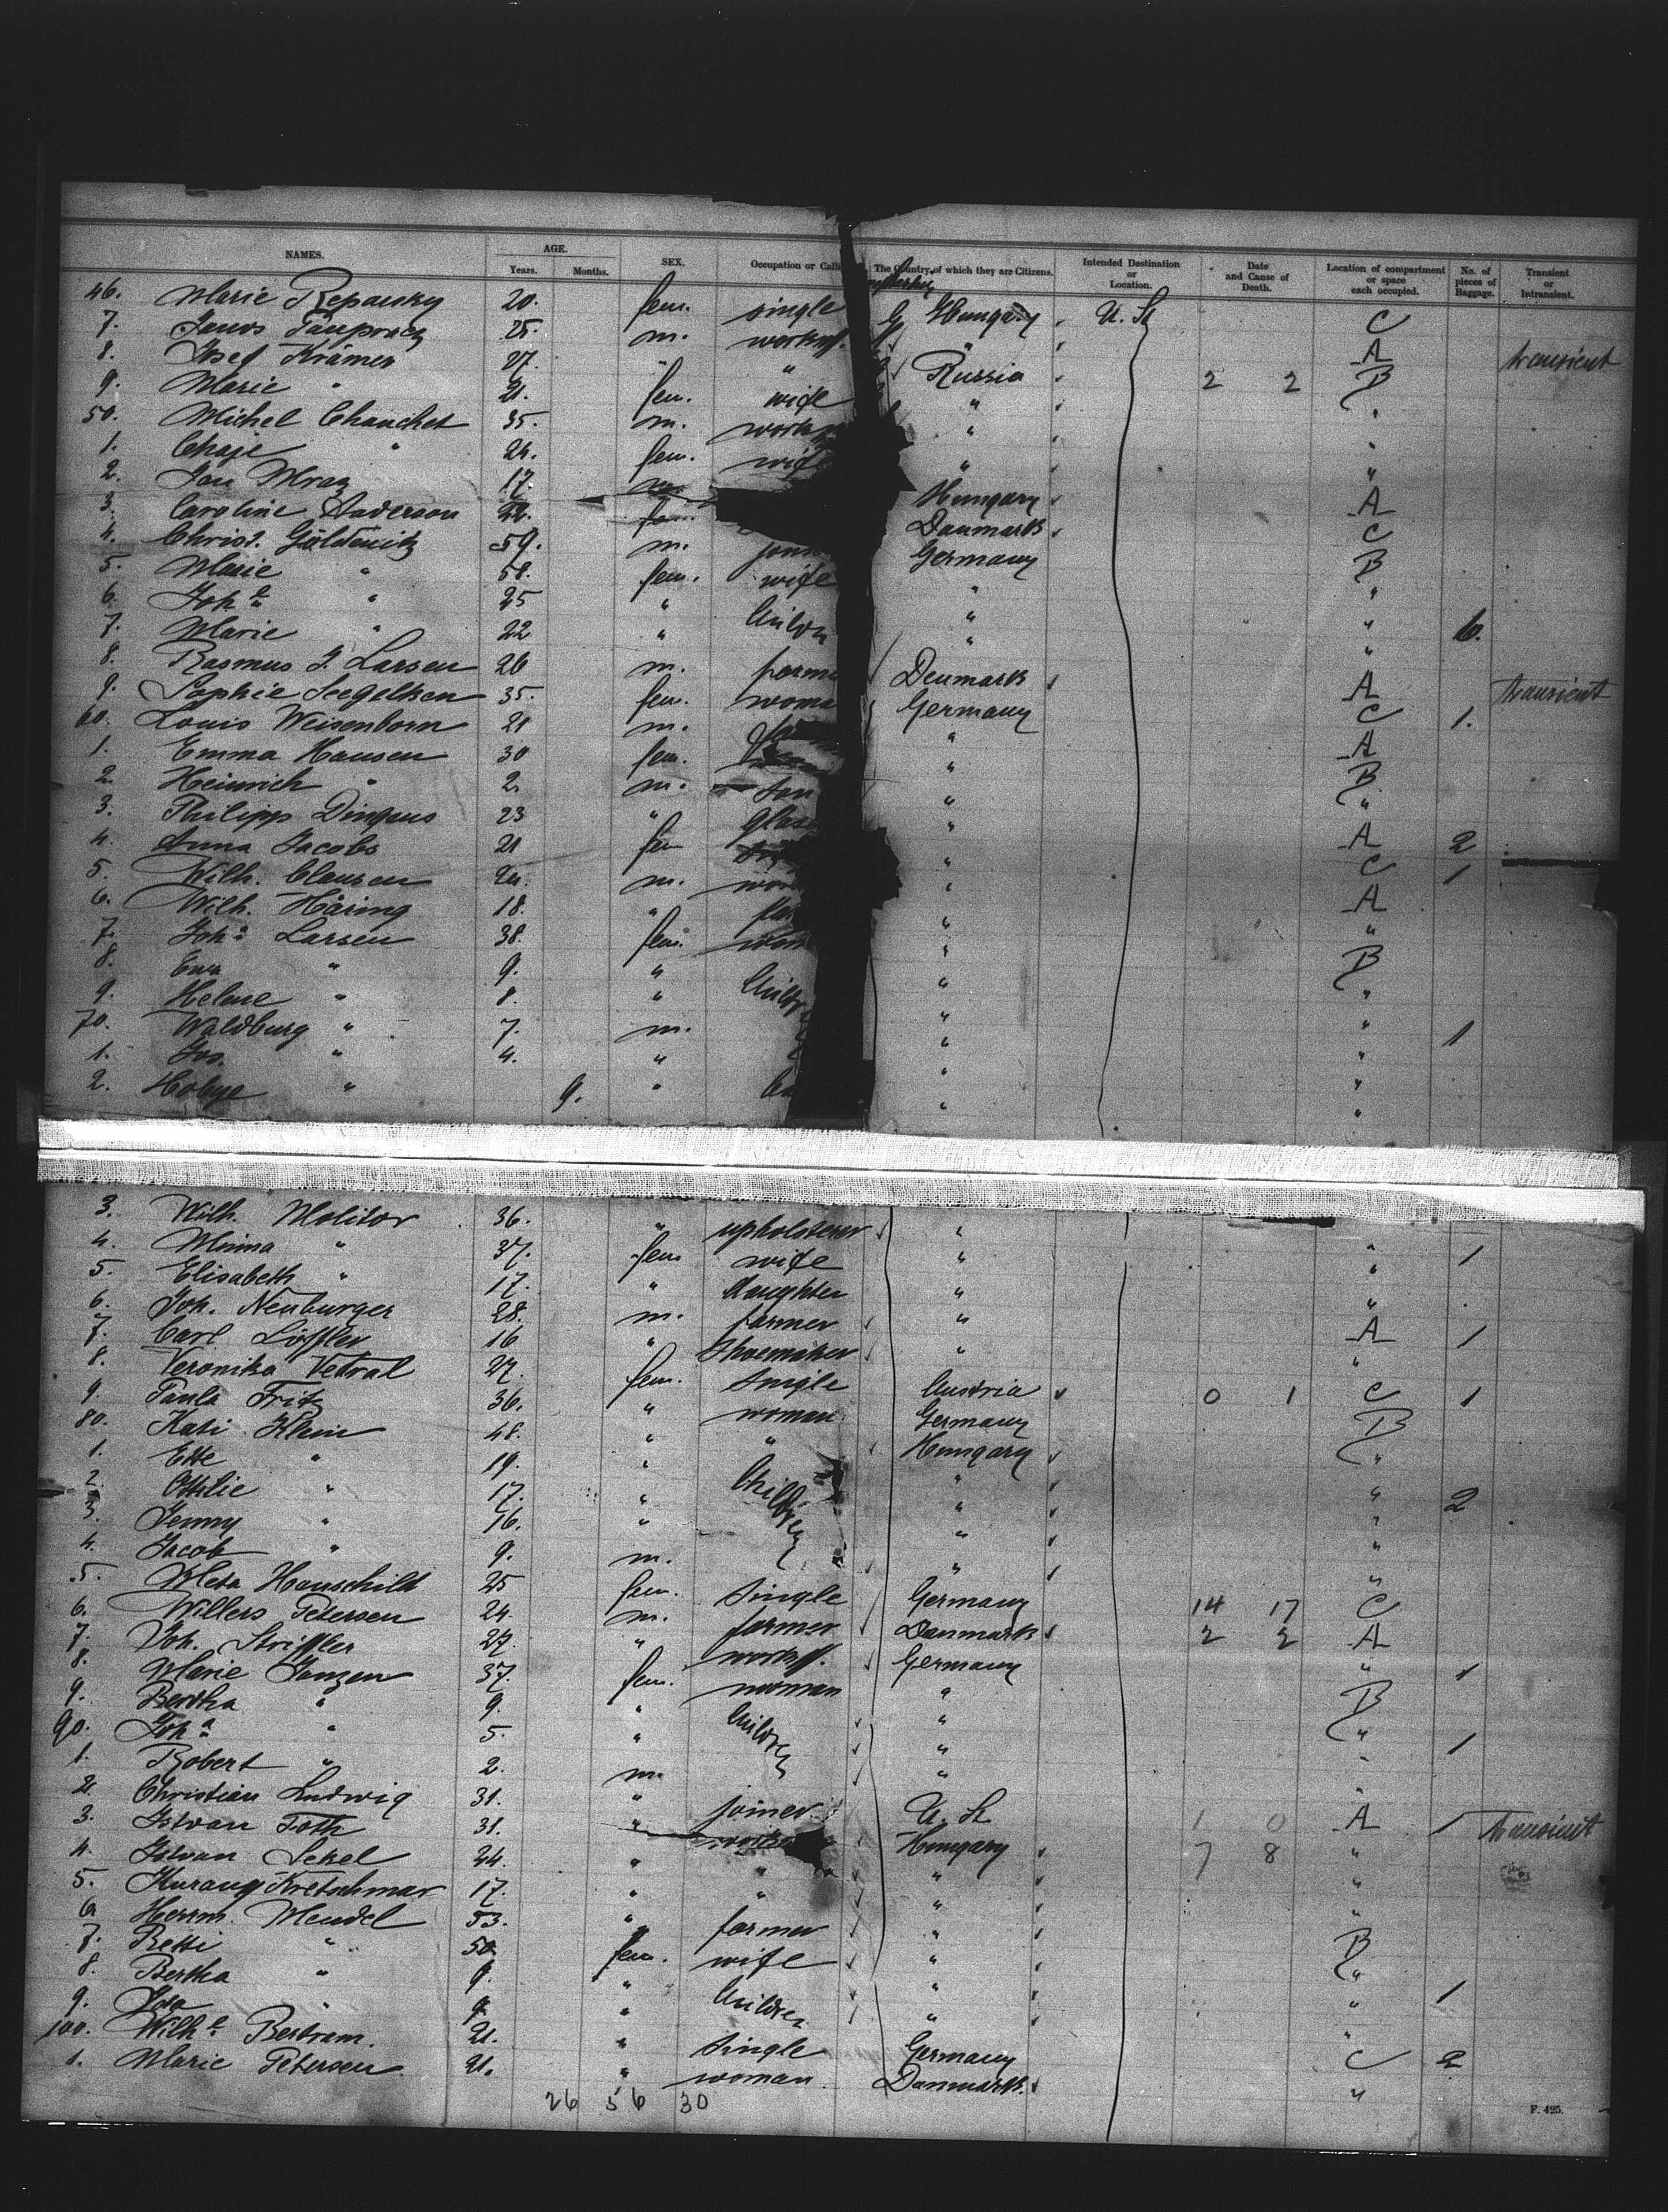 NAMES. AGE. Years. Months. SEX. Occupation or Calli The Country, of which they are Citizens. Intended Destination or Location. Date and Cause of Death. Location of compartment or space each occupied. No. of pieces of Baggage. Transient or Intransient.
46. Marie Repausky 20. fem. single Hungary U. St C
7. Janos 25. m. workm. " A transient
8. Josef Krämer 27. " " Russia 2 2 B
9. Marie " 21. fem. wife " "
50. Michel Chanchet 35. m. work " "
1. Chaje " 24. fem. wif " "
2. Jan Mraz 17. m. Hungary A
3. Caroline Anderson 22. fem. Danmark C
4. Christ. Göldenitz 59. m. join Germany B
5. Marie " 58. fem. wife " "
6. Joh.e " 25 " Childr " "
7. Marie " 22 " " " 6.
8. Rasmus J. Larsen 26 m. farme Denmark A transient
9. Sophie Seegelken 35. fem. woma Germany C 1.
60. Louis Weisenborn 21 m. " A
1. Emma Hansen 30 fem. " B
2. Heinrich " 2. m. son " "
3. Philipp Dingeus 23 " glas " A 2
4. Anna Jacobs 21 fem " C 1
5. Wilh. Clausen 24. m. wor " A
6. Wilh. Häring 18. " " "
7. Joh.a Larsen 38. fem. wom " B
8. Ewa " 9. " " "
9. Helene " 8. " Childr " "
70. Waldburg " 7. m. " " 1
1. Jos. " 4. " " "
2. " 9. " " "
3. Wilh. Molitor 36. " upholsterer " "
4. Minna " 37. fem wife " " 1
5. Elisabeth " 17. " daughter " "
6. Joh. Neuburger 28. m. farmer " A 1
7. Carl Löffler 16 " Shoemaker " "
8. Veronika Vetral 27. fem. Single Austria 0 1 C 1
9. Paula Fritz 36. " woman Germany B
80. Kati Klein 48. " " Hungary "
1. Ette " 19. " Children " "
2. Ottilie " 17. " " " 2
3. Jenny " 16. " " "
4. Jacob " 9. m. " "
5. Meta Hauschildt 25 fem. Single Germany 14 17 C
6. Willers Petersen 24. m. farmer Danmark 2 2 A
7. Joh. Striffler 27. " workm. Germany " 1
8. Marie Janzen 37. fem. woman " B
9. Bertha " 9. " Children " "
90. Joh.a " 5. " " " 1
1. Robert " 2. m. " "
2. Christian Ludwig 31. " joiner U. St 1 0 A 1 transient
3. Istvan Toth 31. " worker Hungary 7 8 "
4. Istvan Sekel 24. " " " "
5. Kretschmar 17. " " " "
6. Herrm. Mendel 53. " farmer " B
7. Betti " 50. fem. wife " "
8. Bertha " 9. " Children " " 1
9. " 9. " " "
100. Wilh.e Bertram. 21. " Single Germany C 2
1. Marie Petersen 21. " woman Danmark. "
26 56 30
F. 425.